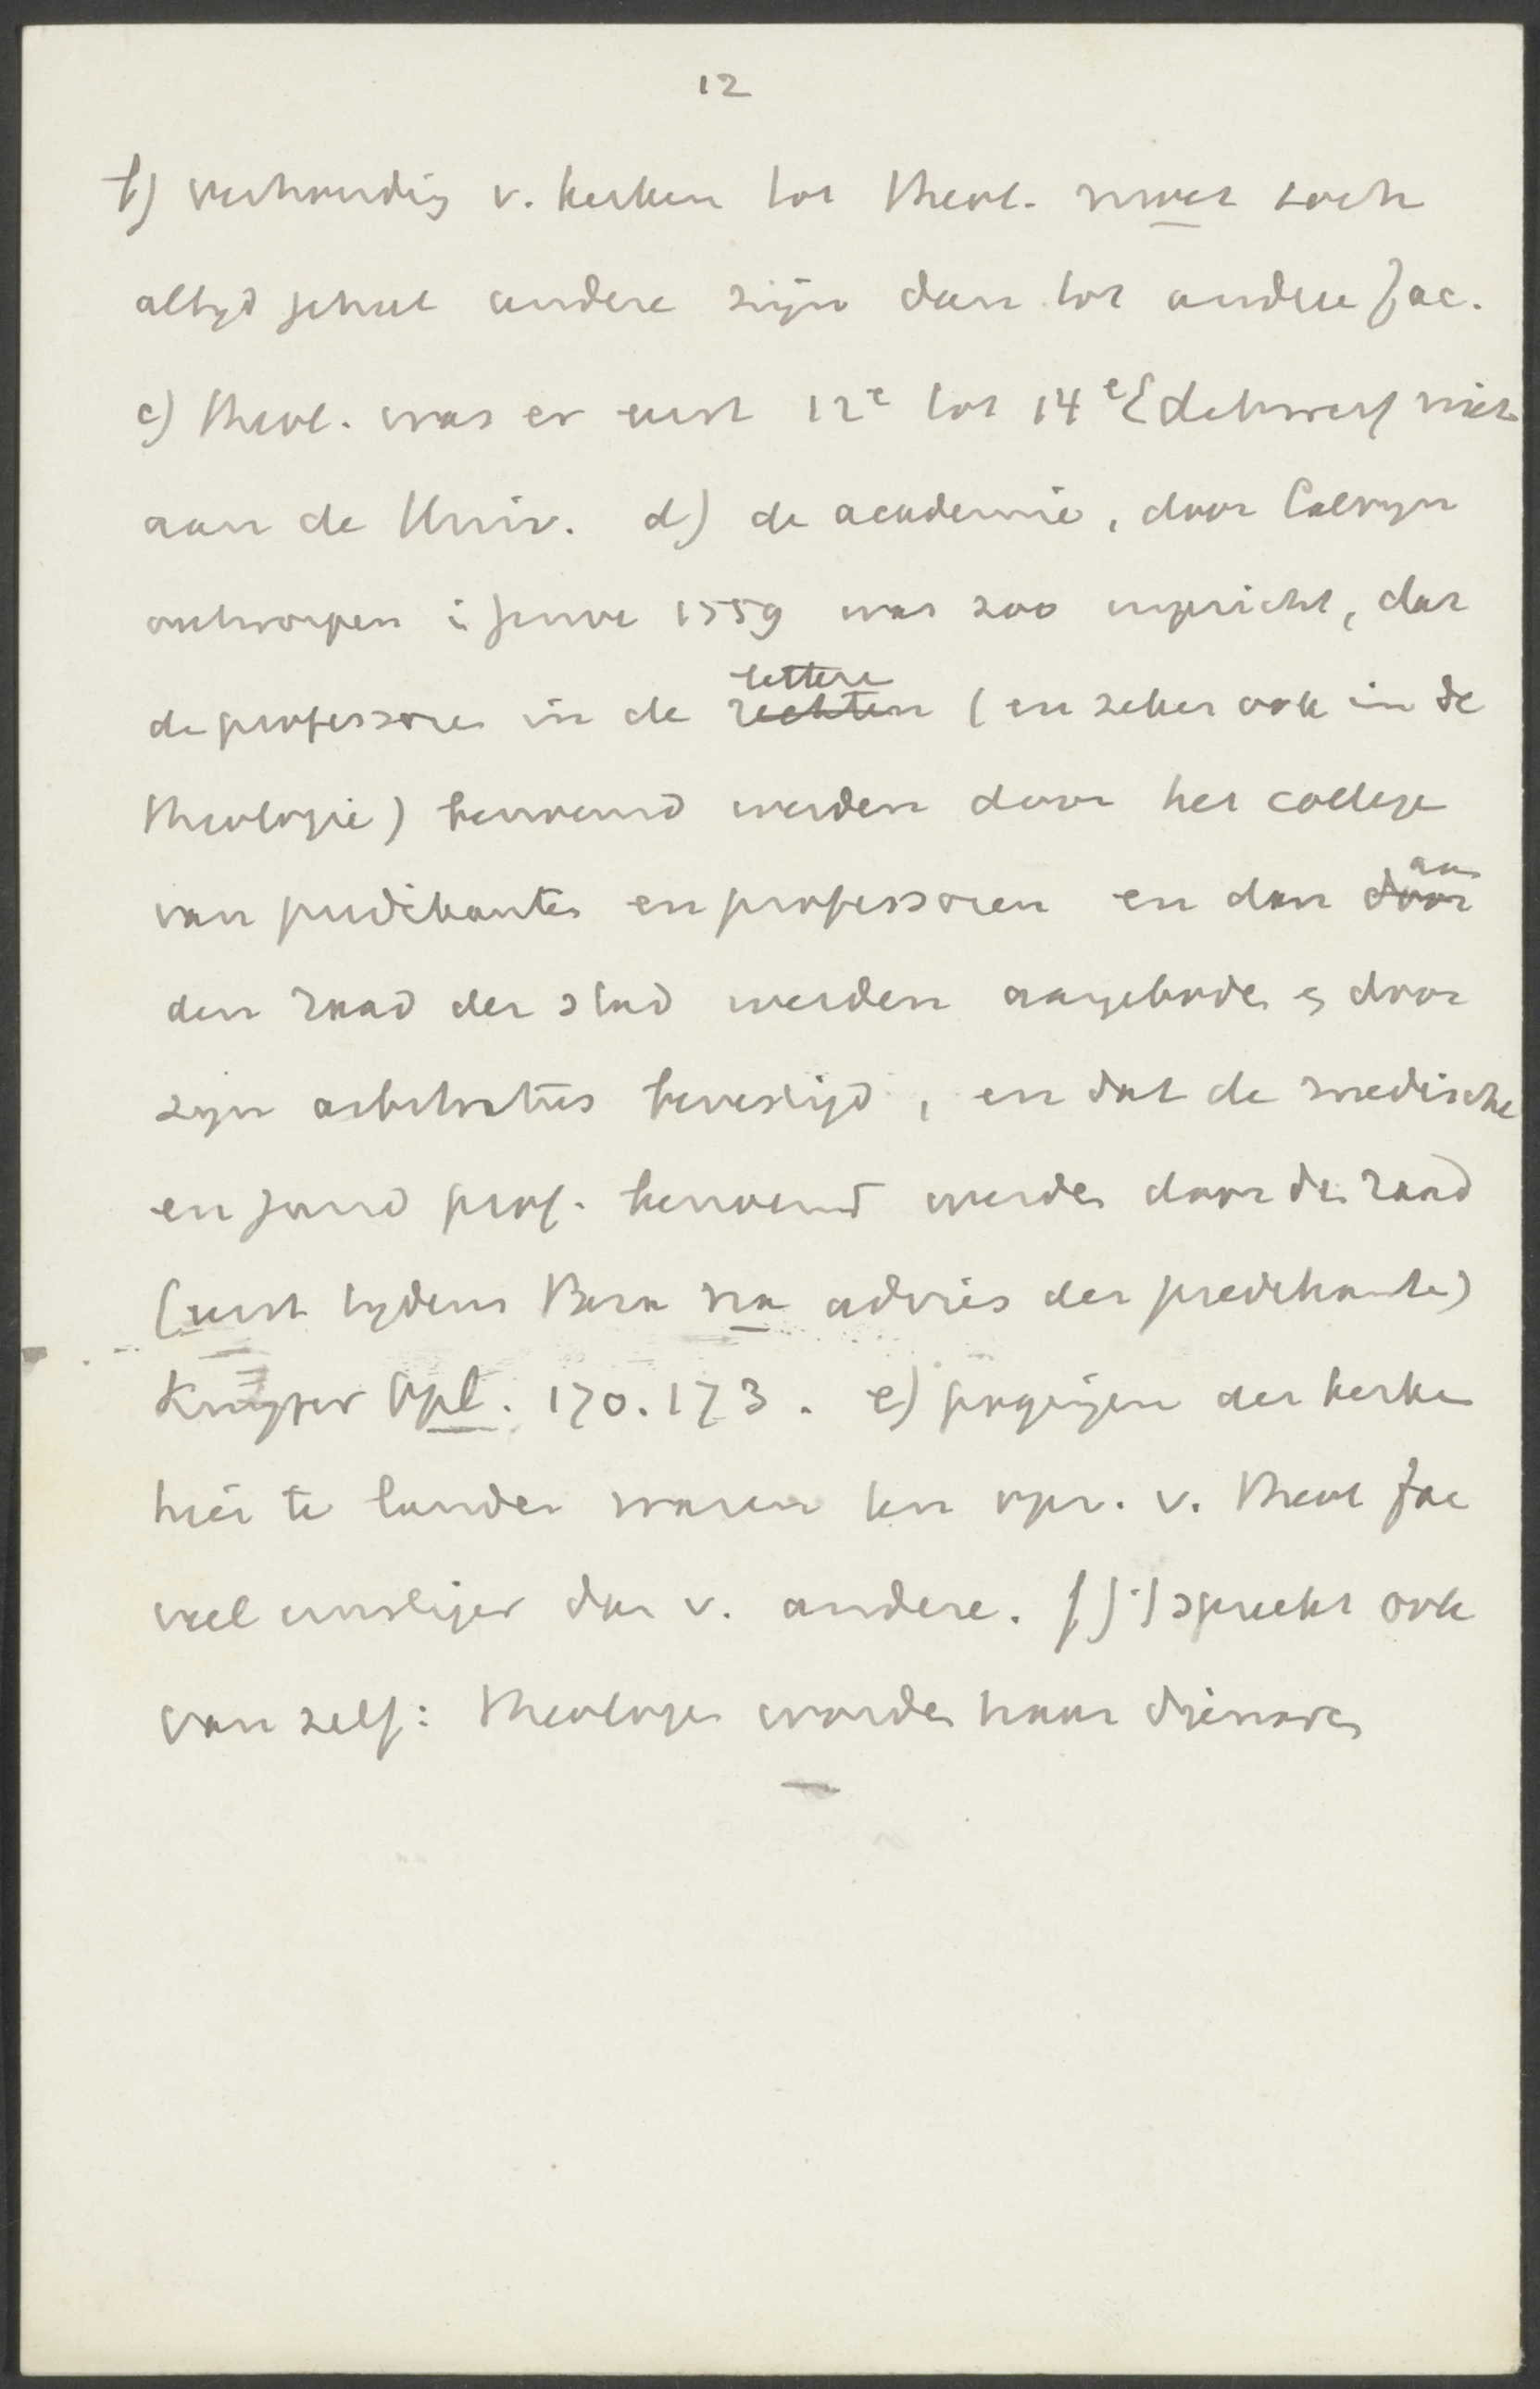 12
b) verhouding v. kerken tot theol. moet toch
altijd geheel andere zijn dan tot andere fac.
c) theol. was er eerst 12e tot 14e E dikwerf niet
aan de Univ. d) de academie, door Calvijn
ontworpen i Genve 1559 was zoo ingericht, dat
lettere
de professoren in de rechten (en zeker ook in de
theologie) benoemd werden door het college
aan
van predikanten en professoren en dan door
den raad der stad werden aangeboden en door
zijn bevestigd, en dat de medische
en jurid prof. benoemd werden door den raad
(eerst tijdens Beza na advies der predikanten)
Kuyper Opl. 170.173. e) pogingen der kerken
hier te lande waren ten opz. v. theol fac
veel ernstiger dan v. andere. f) 't spreekt ook
van zelf: theologen worden haar dienaren